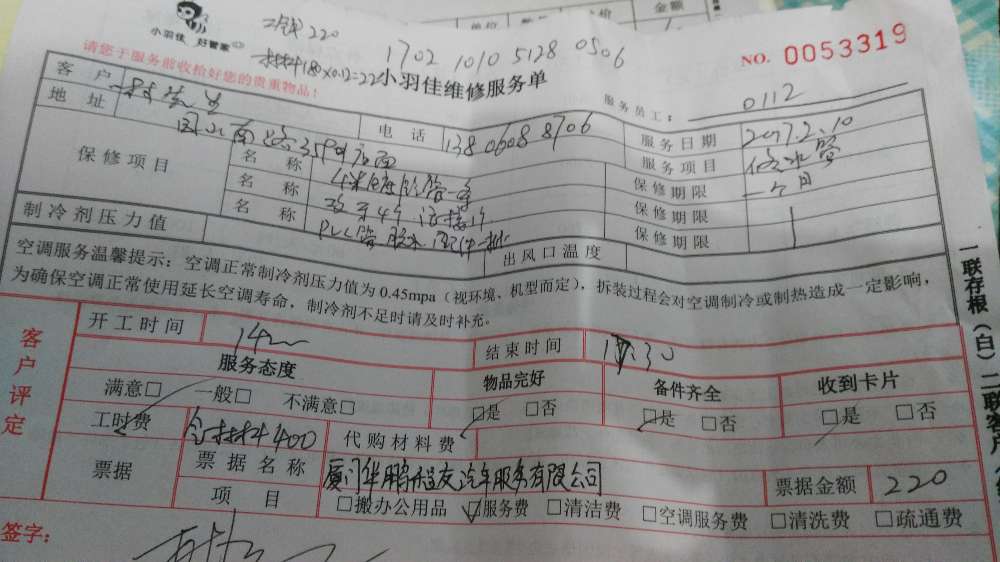 单位 数量 单价 金额
小羽佳 好管家
工钱220
1702 1010 5128 0506
NO. 0053319
请您于服务前收拾好您的贵重物品！
材料180×0.12=22
小羽佳维修服务单
服务员工： 0112
客户 林先生 电话 138 0608 8706 服务日期 2017.2.10
地址 服务项目 修水管
保修项目 名称 保修期限 一个月
名称 保修期限
名称 PVC管 胶水 保修期限
制冷剂压力值 出风口温度
空调服务温馨提示：空调正常制冷剂压力值为0.45mpa（视环境、机型而定），拆装过程会对空调制冷或制热造成一定影响，
为确保空调正常使用延长空调寿命，制冷剂不足时请及时补充。
客户评定
开工时间 结束时间 17:30
服务态度 物品完好 备件齐全 收到卡片
满意□ 一般□ 不满意□ □是 □否 □是 □否 □是 □否
工时费 含材料400 代购材料费
票据 票据名称 票据金额 220
项目 □搬办公用品 ☑服务费 □清洁费 □空调服务费 □清洗费 □疏通费
签字：
一联存根（白）二联客户